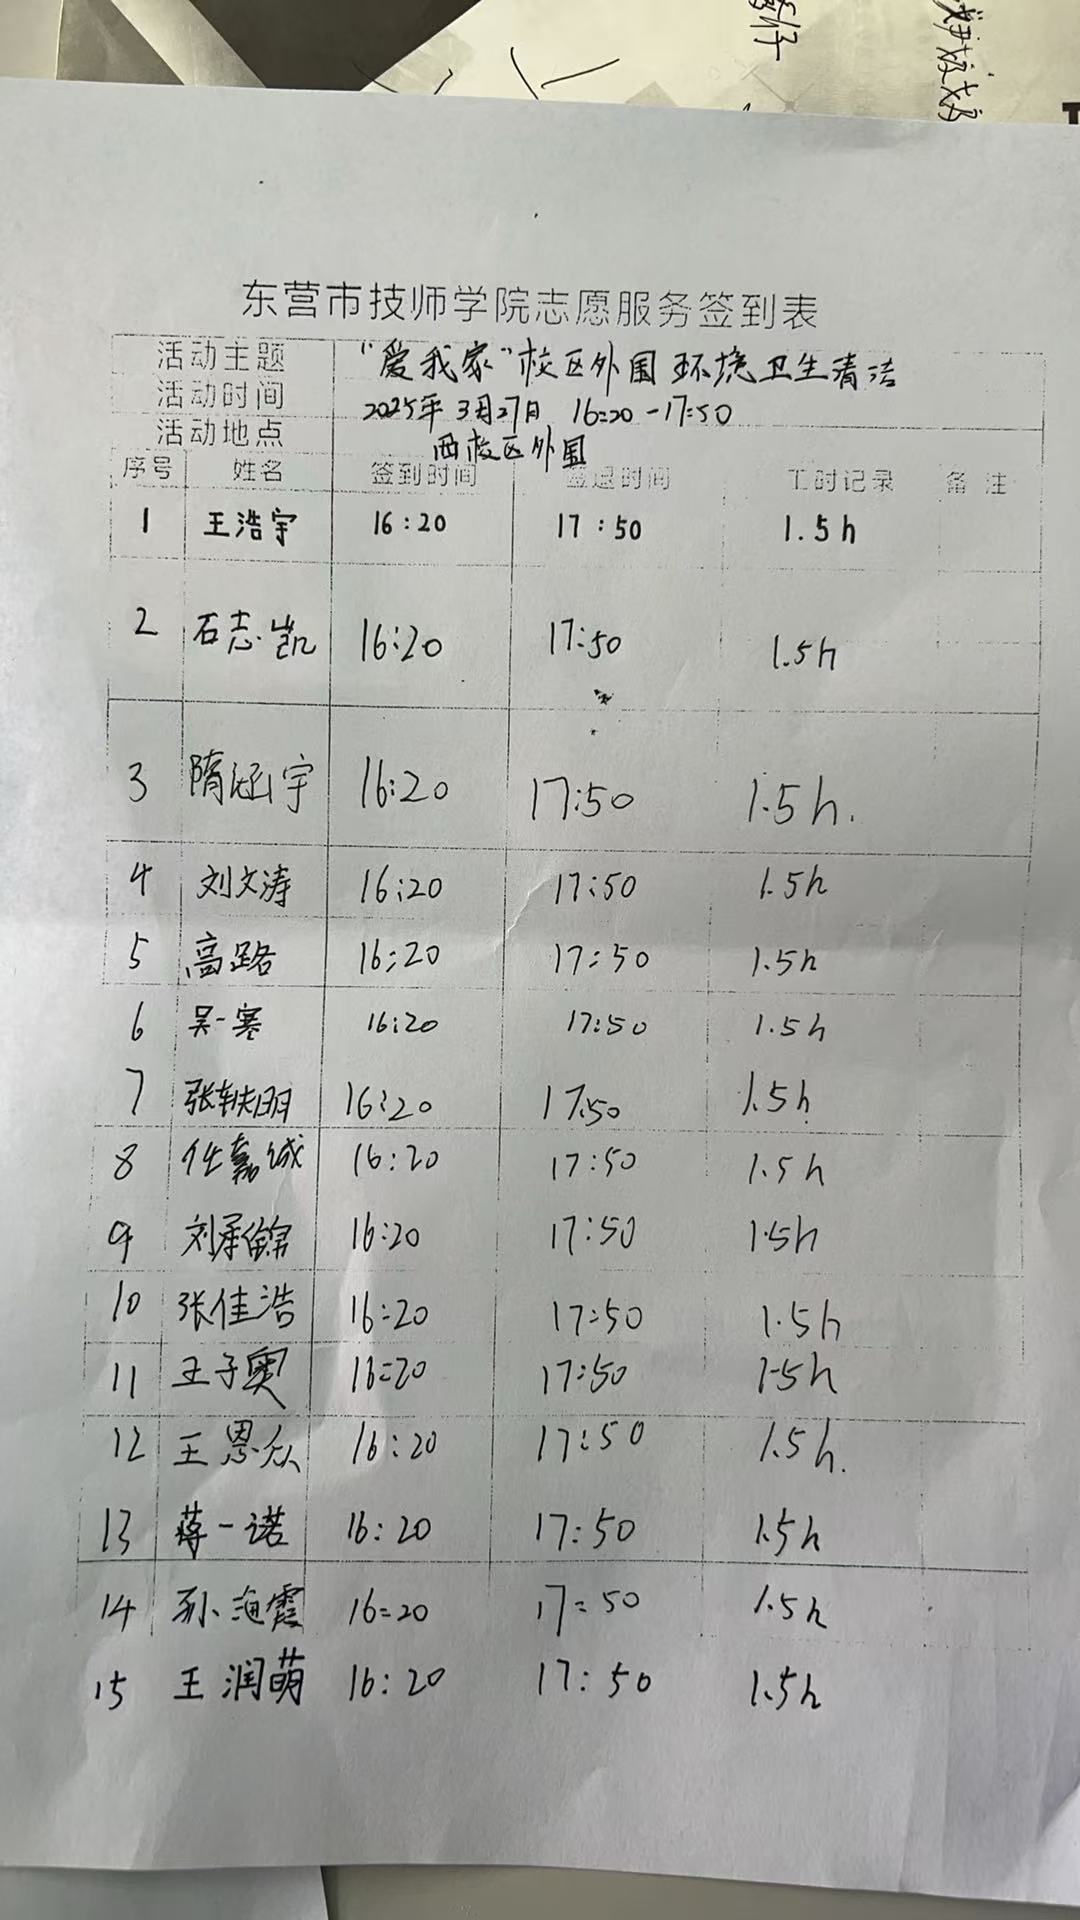 东营市技师学院志愿服务签到表
活动主题 "爱我家"校区外围环境卫生清洁
活动时间 2025年3月27日 16:20-17:50
活动地点 西校区外围
序号 姓名 签到时间 签退时间 工时记录 备注
1 王浩宇 16:20 17:50 1.5h
2 石志凯 16:20 17:50 1.5h
3 隋涵宇 16:20 17:50 1.5h.
4 刘文涛 16:20 17:50 1.5h
5 高路 16:20 17:50 1.5h
6 吴一寒 16:20 17:50 1.5h
7 张轶明 16:20 17:50 1.5h
8 任嘉诚 16:20 17:50 1.5h
9 刘承 16:20 17:50 1.5h
10 张佳浩 16:20 17:50 1.5h
11 王子奥 16:20 17:50 1.5h
12 王恩众 16:20 17:50 1.5h.
13 蒋一诺 16:20 17:50 1.5h
14 孙海霞 16:20 17:50 1.5h
15 王润萌 16:20 17:50 1.5h